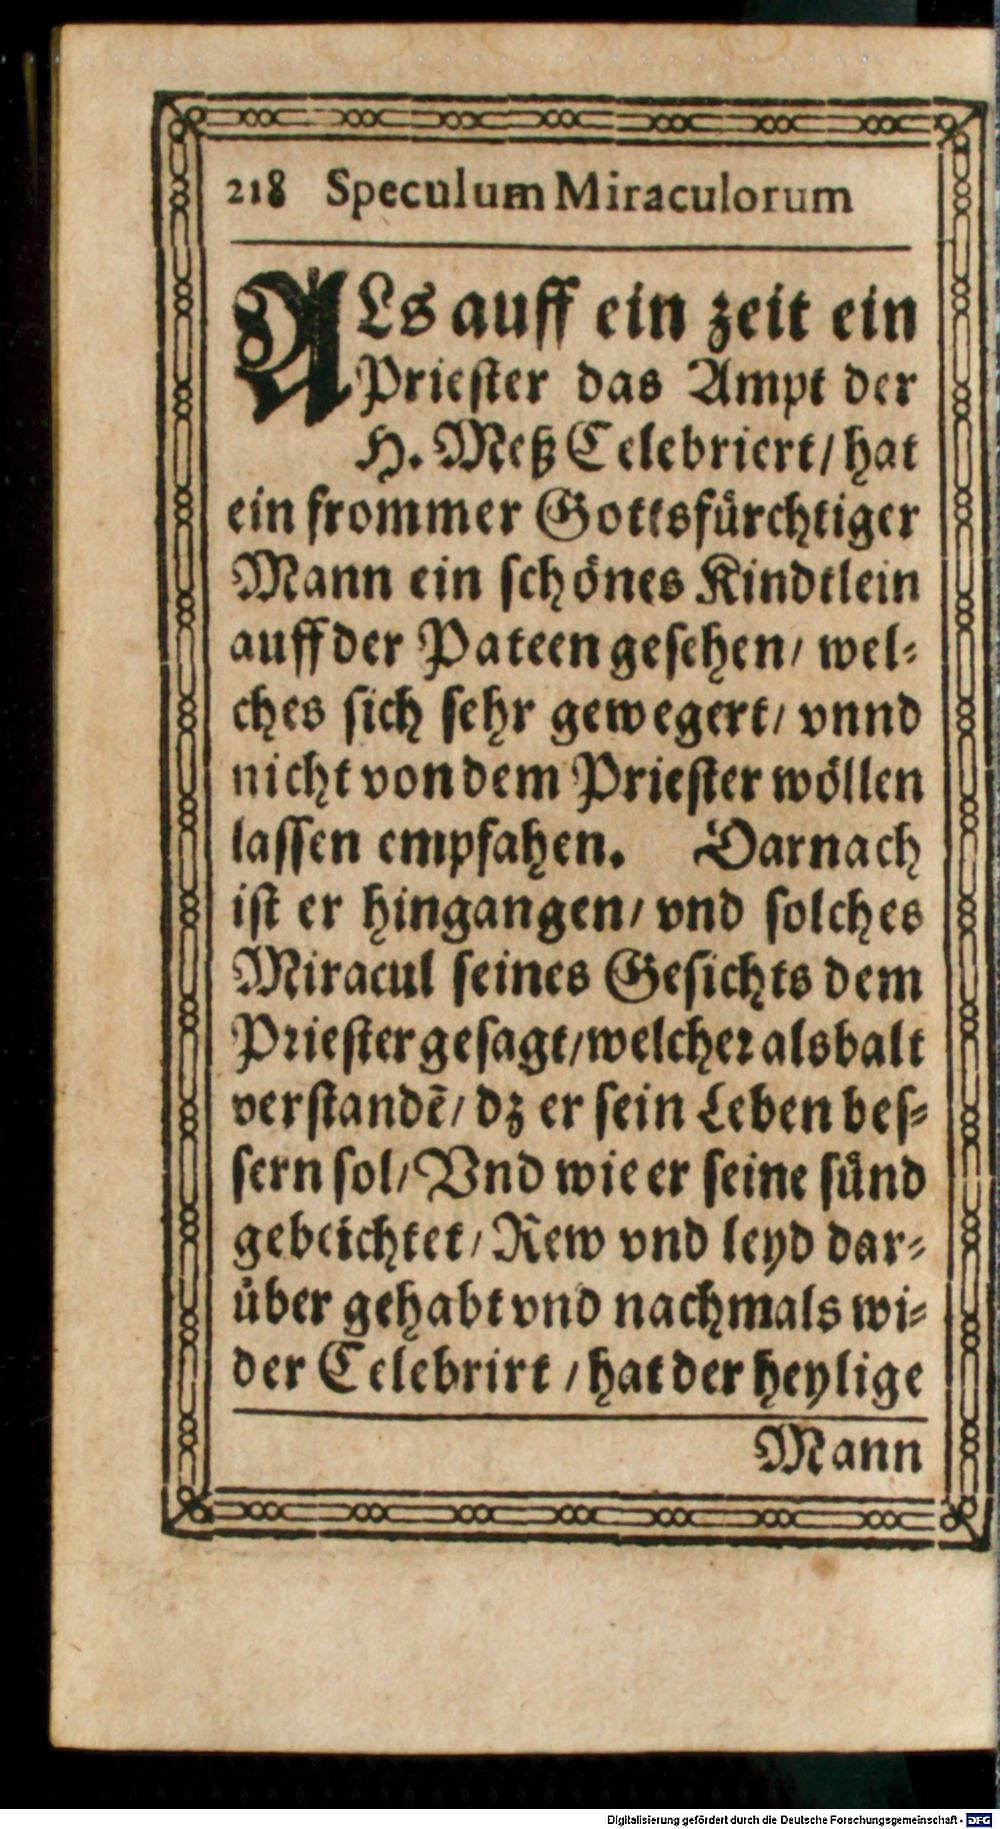 218 Speculum Miraculorum
ALs auff ein zeit ein
Priester das Ampt der
H. Meß Celebriert/ hat
ein frommer Gottsfürchtiger
Mann ein schönes Kindtlein
auff der Pateen gesehen/ wel-
ches sich sehr gewegert/ vnnd
nicht von dem Priester wöllen
lassen empfahen. Darnach
ist er hingangen/ vnd solches
Miracul seines Gesichts dem
Priester gesagt/ welcher alsbalt
verstandẽ/ dz er sein Leben bes-
sern sol/ Vnd wie er seine sünd
gebeichtet/ Rew vnd leyd dar-
über gehabt vnd nachmals wi-
der Celebrirt / hat der heylige
Mann
Digitalisierung gefördert durch die Deutsche Forschungsgemeinschaft - DFG